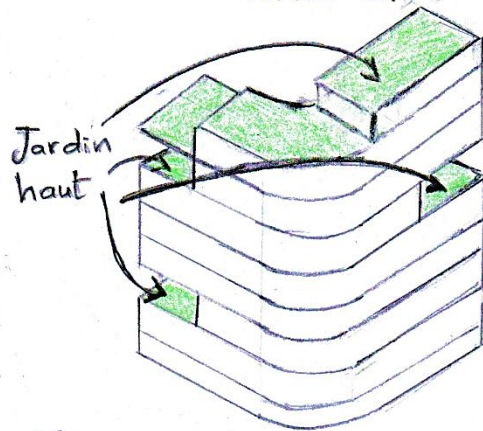 Jardin
haut